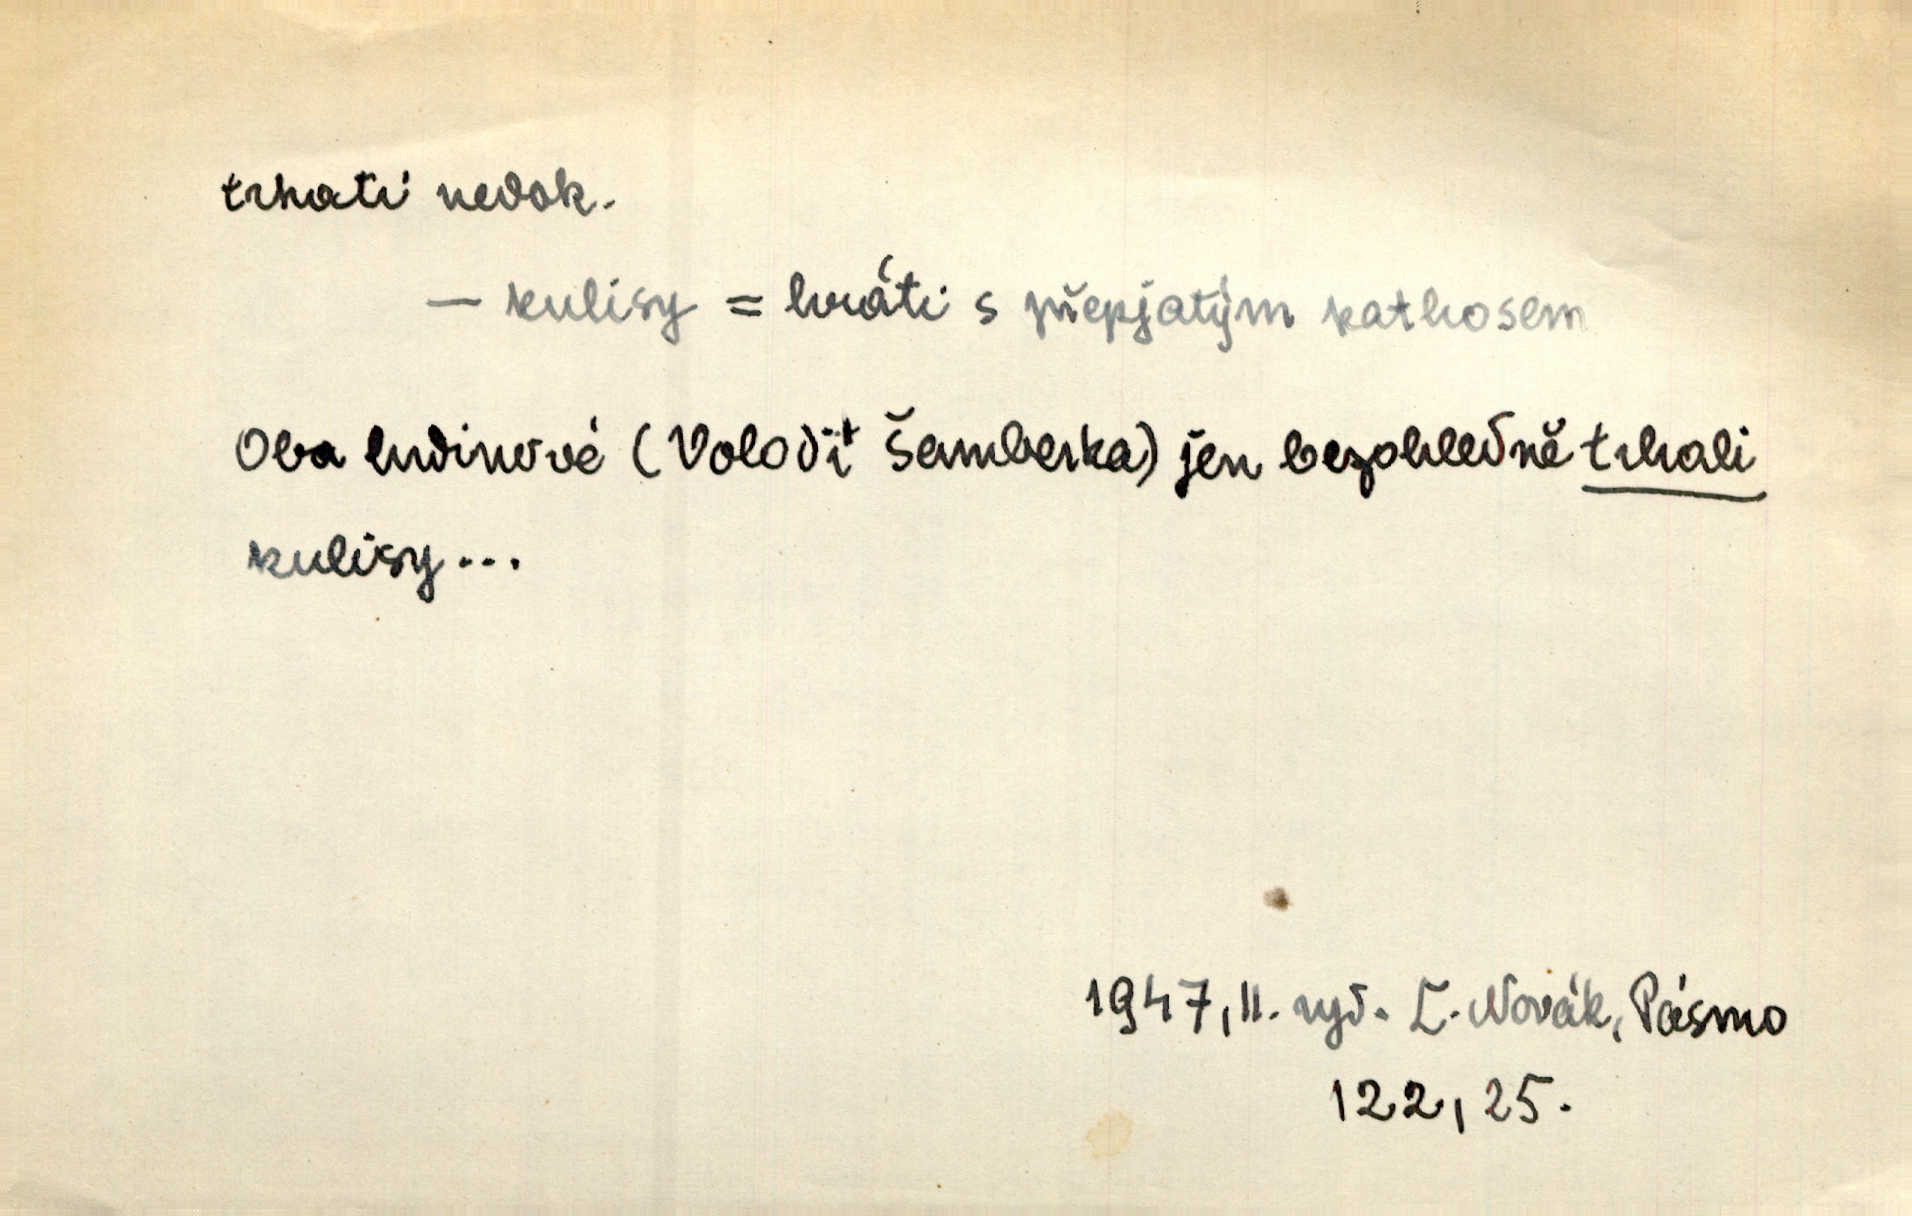 trhati nedok.
— kulisy = hráti s přepjatým pathosem
Oba hrdinové (Volodi + Šamberka) jen bezohledně trhali
kulisy...
1947, II. vyd. L. Novák, Pásmo
122, 25.